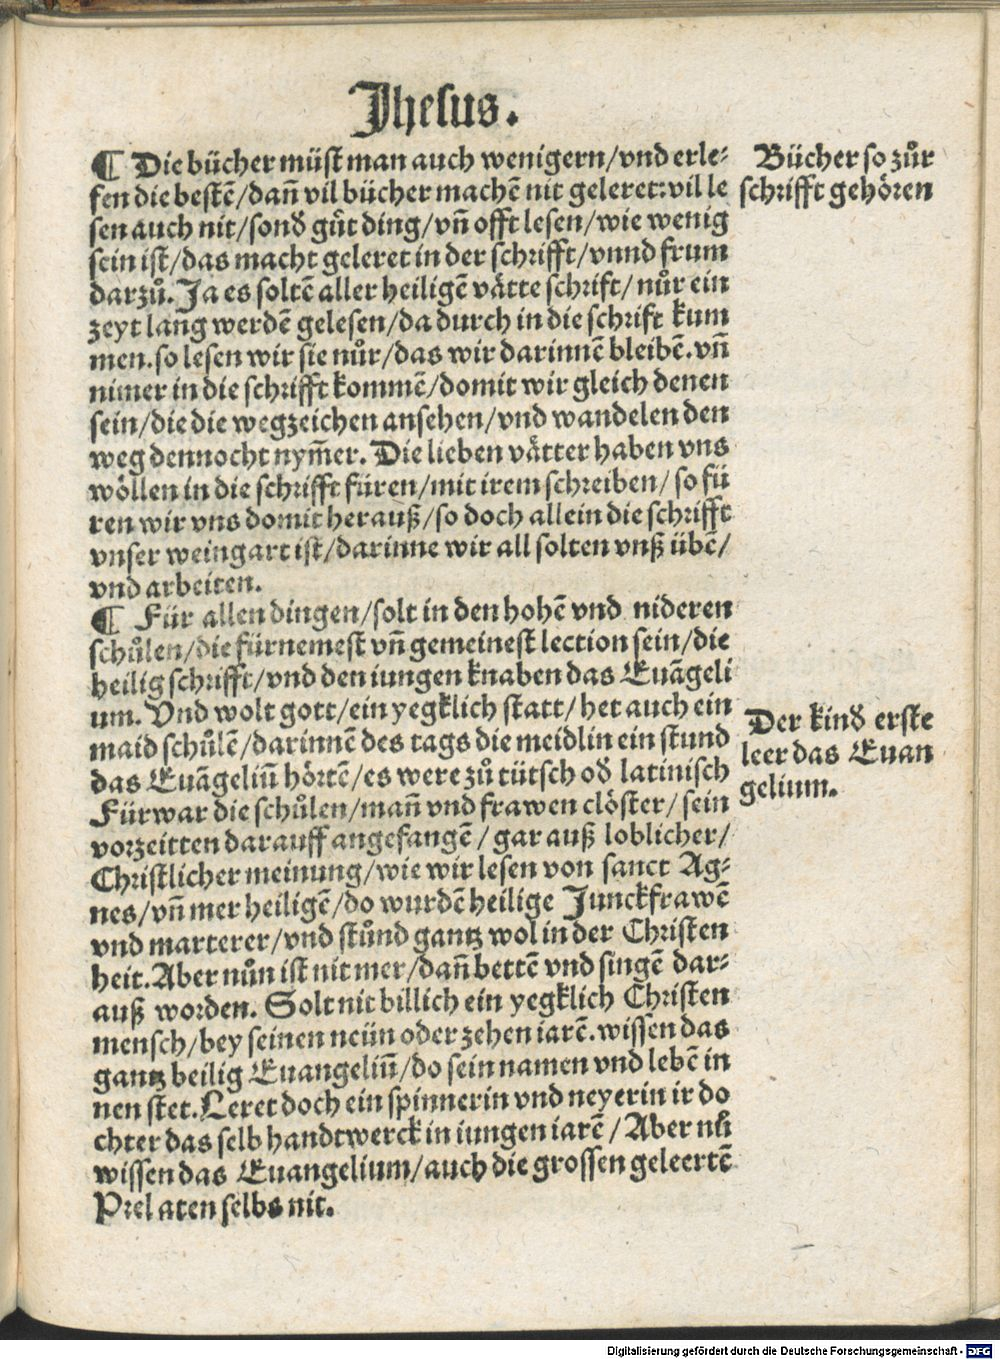 Jhesus.
¶ Die bücher müst man auch wenigern/vnd erle⸗
sen die bestē/dañ vil bücher machē nit geleret:vil le
sen auch nit/sond gůt ding/vñ offt lesen/wie wenig
sein ist/das macht geleret in der schrifft/vnnd frum
darzů. Ja es soltē aller heiligē vätte schrift/nůr ein
zeyt lang werdē gelesen/da durch in die schrift kum
men. so lesen wir sie nůr/das wir darinnē bleibē. vñ
nimer in die schrifft kommē/domit wir gleich denen
sein/die die wegzeichen ansehen/vnd wandelen den
weg dennocht nym̄er. Die lieben vätter haben vns
wöllen in die schrifft füren/mit irem schreiben/ so fü
ren wir vns domit herauß/so doch allein die schrifft
vnser weingart ist/darinne wir all solten vnß übē/
vnd arbeiten.
¶ Für allen dingen/solt in den hohē vnd nideren
schůlen/die fürnemest vñ gemeinest lection sein/die
heilig schrifft/vnd den iungen knaben das Euāgeli
um. Vnd wolt gott/ein yegklich statt/het auch ein
maid schůlē/darinnē des tags die meidlin ein stund
das Euāgeliū hörtē/es were zů tütsch od latinisch
Fürwar die schůlen/mañ vnd frawen clöster/sein
vorzeitten darauff angefangē/gar auß loblicher/
Christlicher meinung/wie wir lesen von sanct Ag⸗
nes/vñ mer heiligē/do wurdē heilige Junckfrawē
vnd marterer/vnd stůnd gantz wol in der Christen
heit. Aber nůn ist nit mer/dañ bettē vnd singē dar⸗
auß worden. Solt nit billich ein yegklich Christen
mensch/bey seinen neün oder zehen iarē. wissen das
gantz heilig Euangeliū/do sein namen vnd lebē in
nen stet. Leret doch ein spinnerin vnd neyerin ir do
chter das selb handtwerck in iungen iarē/Aber nů
wissen das Euangelium/auch die grossen geleertē
Prelaten selbs nit.
Bücher so zůr
schrifft gehören
Der kind erste
leer das Euan
gelium.
Digitalisierung gefördert durch die Deutsche Forschungsgemeinschaft - DFG